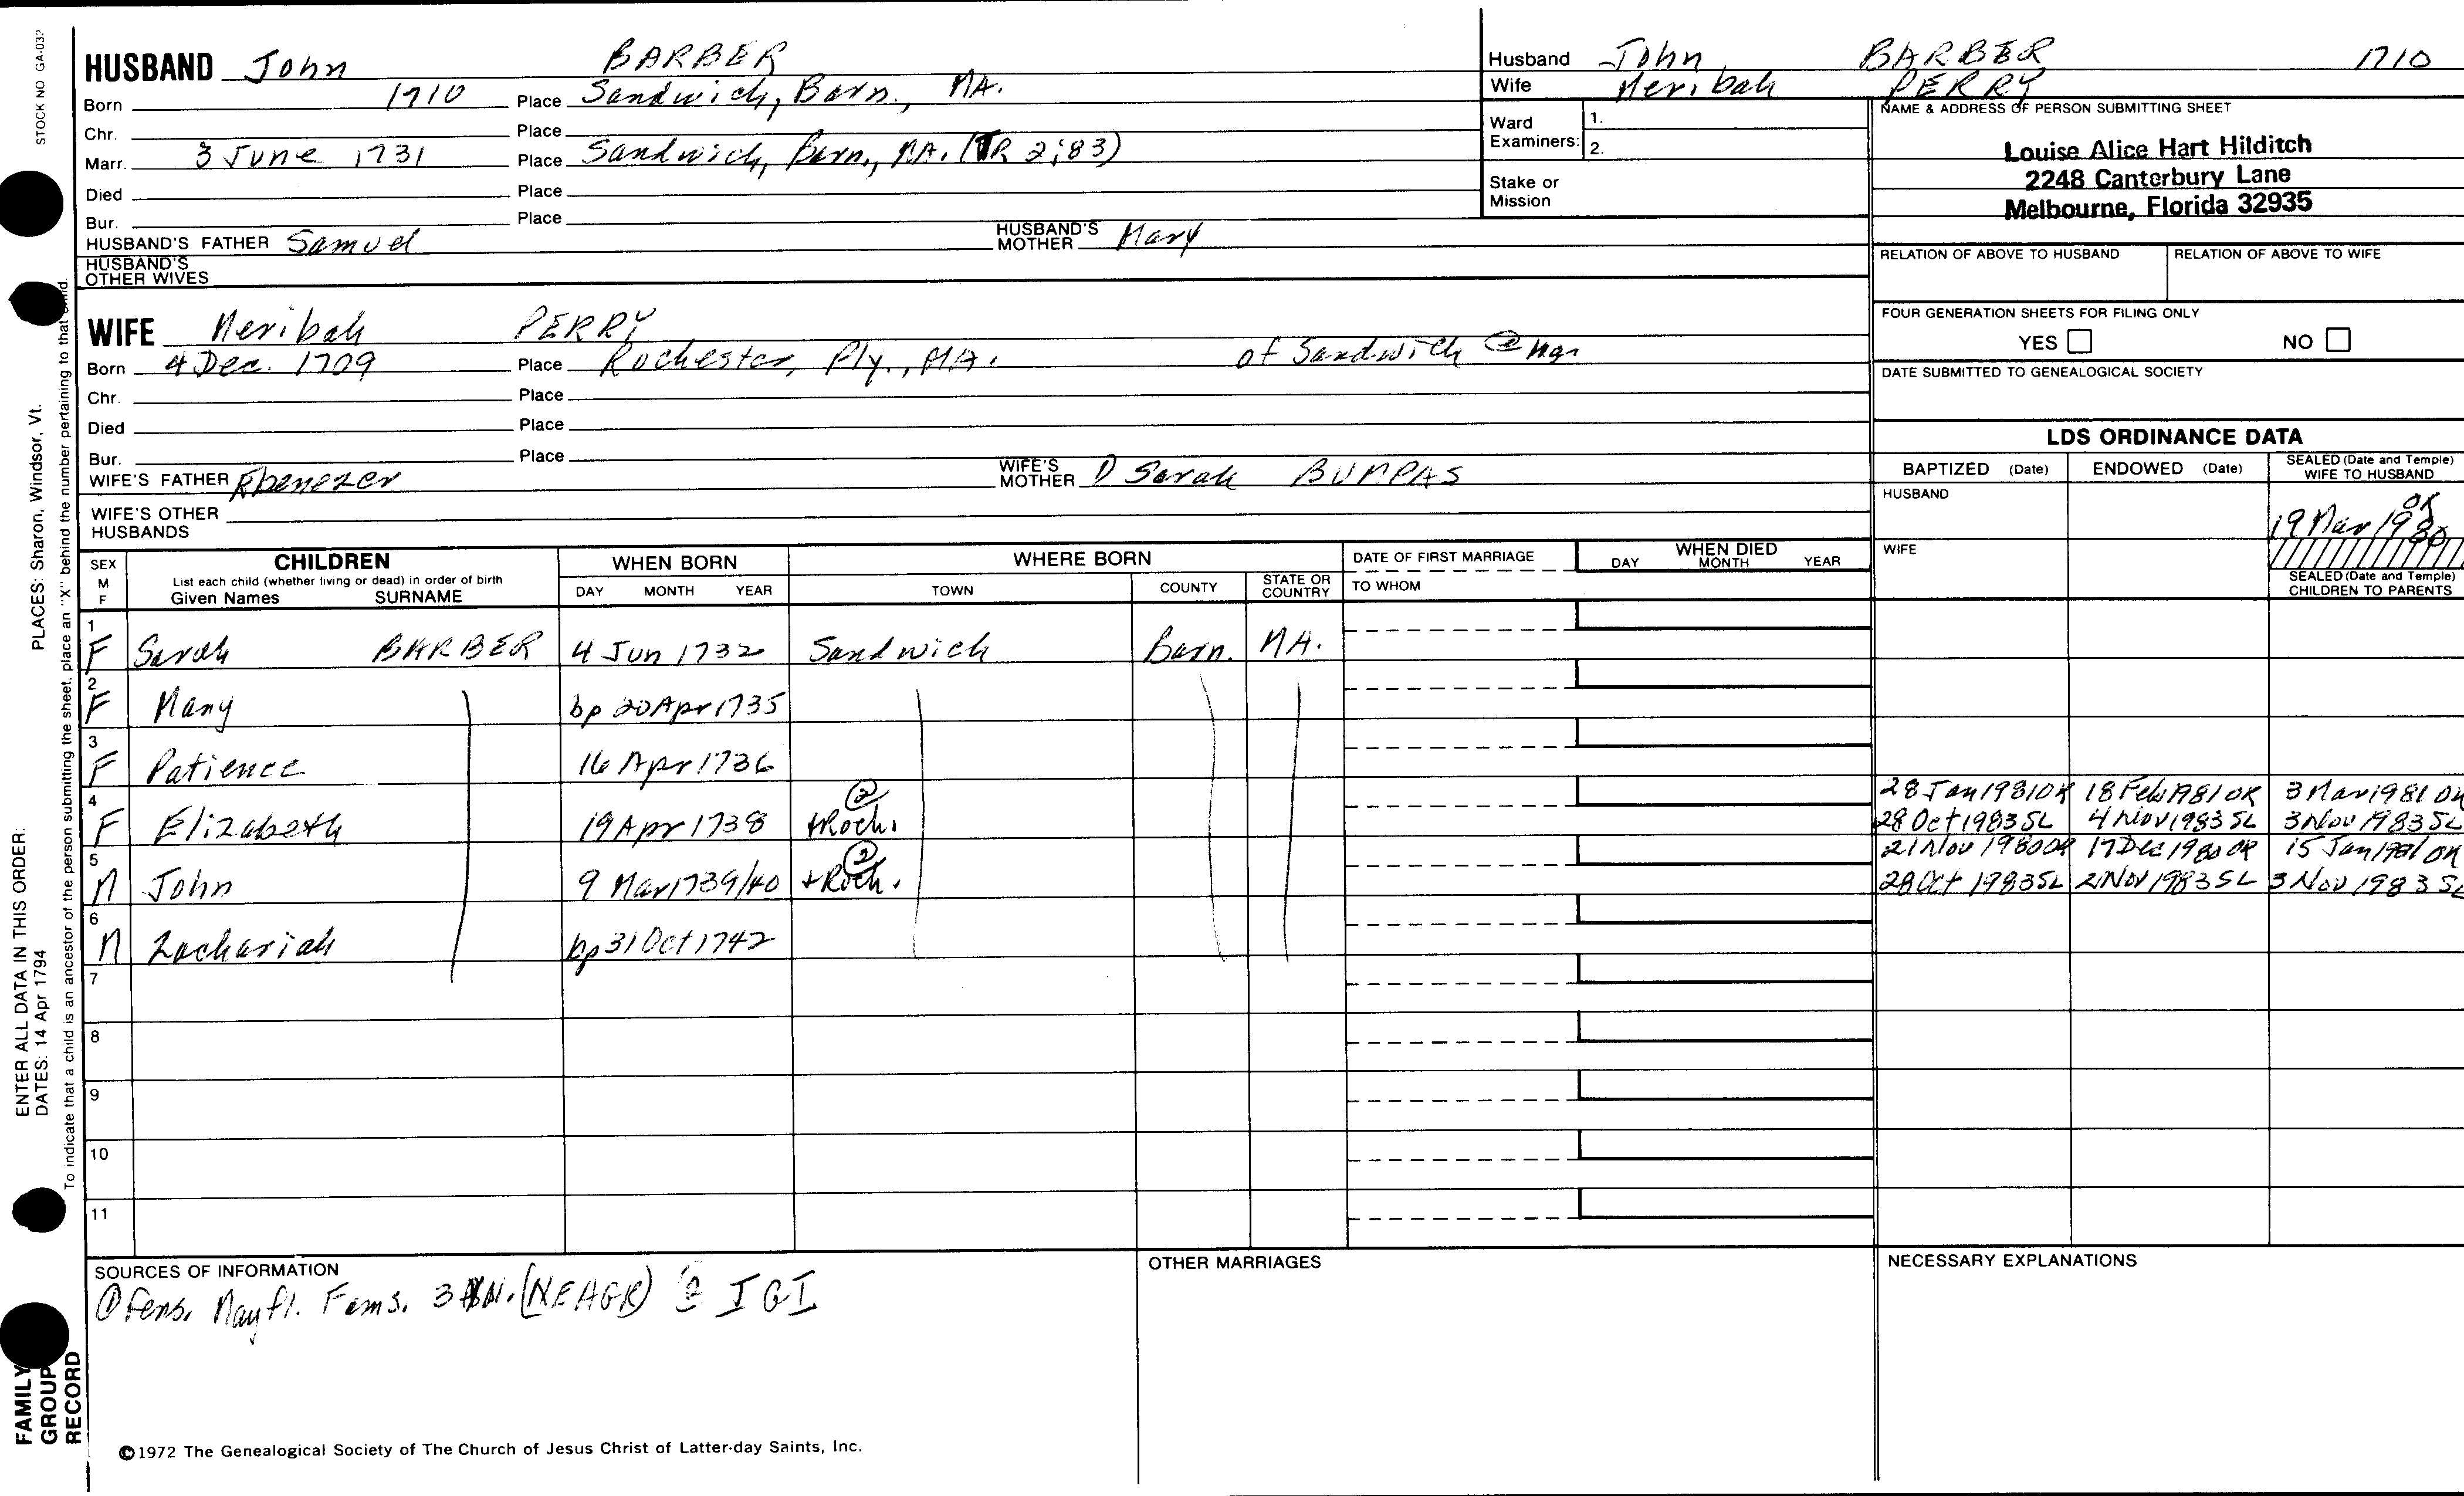 STOCK NO GA-03?
HUSBAND John BARBER
Born 1710 Place Sandwich, Barn., MA.
Chr. Place
Marr. 3 June 1731 Place Sandwich, Barn., MA. (TR 2;83)
Died Place
Bur. Place
HUSBAND'S FATHER Samuel HUSBAND'S MOTHER Mary
HUSBAND'S OTHER WIVES
Husband John BARBER 1710
Wife Meribah PERRY
Ward Examiners: 1.
2.
Stake or Mission
NAME & ADDRESS OF PERSON SUBMITTING SHEET
Louise Alice Hart Hilditch
2248 Canterbury Lane
Melbourne, Florida 32935
RELATION OF ABOVE TO HUSBAND RELATION OF ABOVE TO WIFE
FOUR GENERATION SHEETS FOR FILING ONLY
YES NO
DATE SUBMITTED TO GENEALOGICAL SOCIETY
WIFE Meribah PERRY
Born 4 Dec. 1709 Place Rochester, Ply., MA. of Sandwich @
Chr. Place
Died Place
Bur. Place
WIFE'S FATHER Ebenezer WIFE'S MOTHER D Sarah BUMPAS
WIFE'S OTHER HUSBANDS
LDS ORDINANCE DATA
BAPTIZED (Date) ENDOWED (Date) SEALED (Date and Temple) WIFE TO HUSBAND
HUSBAND
19 Mar 1980 OK
WIFE
SEALED (Date and Temple) CHILDREN TO PARENTS
SEX M F
CHILDREN
List each child (whether living or dead) in order of birth
Given Names SURNAME
WHEN BORN
DAY MONTH YEAR
WHERE BORN
TOWN COUNTY STATE OR COUNTRY
DATE OF FIRST MARRIAGE
TO WHOM
WHEN DIED
DAY MONTH YEAR
1 F Sarah BARBER 4 Jun 1732 Sandwich Barn. MA.
2 F Mary bp 20 Apr 1735
3 F Patience 16 Apr 1736
4 F Elizabeth 19 Apr 1738 +Roch. ② 28 Jan 1981 OK 18 Feb 1981 OK 3 Mar 1981 OK
28 Oct 1983 SL 4 Nov 1983 SL 3 Nov 1983 SL
5 M John 9 Mar 1739/40 +Roch. ② 21 Nov 1980 OK 17 Dec 1980 OK 15 Jan 1981 OK
28 Oct 1983 SL 2 Nov 1983 SL 3 Nov 1983 SL
6 M Zachariah bp 31 Oct 1742
7
8
9
10
11
SOURCES OF INFORMATION
① Fens. Mayfl. Fams. (NEAGR) ② IGI
OTHER MARRIAGES
NECESSARY EXPLANATIONS
©1972 The Genealogical Society of The Church of Jesus Christ of Latter-day Saints, Inc.
ENTER ALL DATA IN THIS ORDER:
DATES: 14 Apr 1794
PLACES: Sharon, Windsor, Vt.
To indicate that a child is an ancestor of the person submitting the sheet, place an "X" behind the number pertaining to that child.
FAMILY
GROUP
RECORD